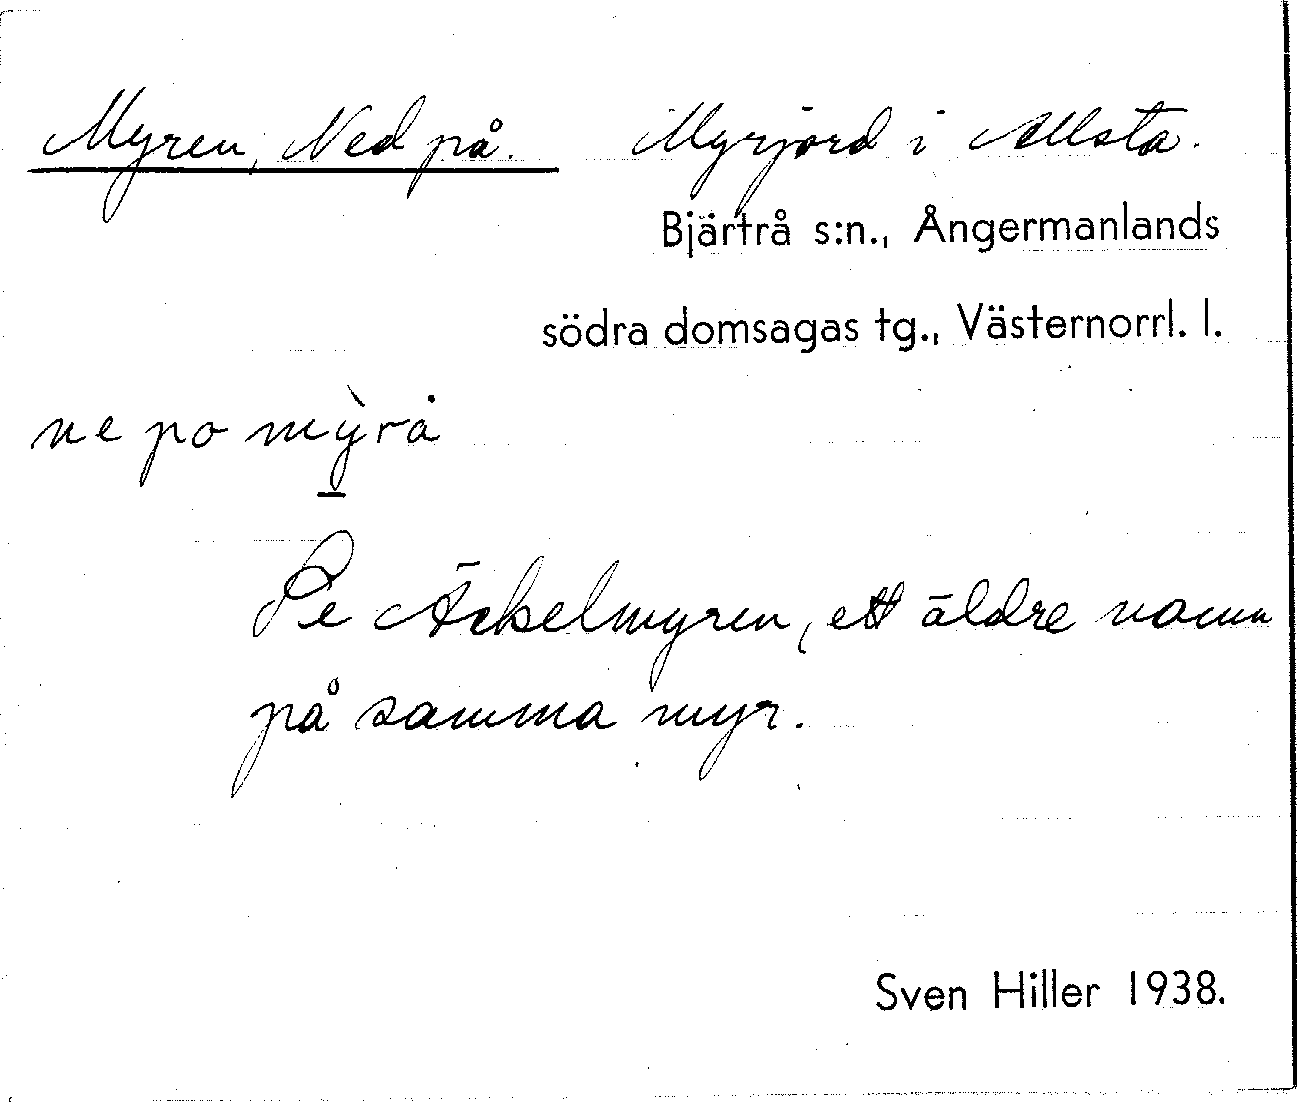 Myren, Ned på. Myrjord i Allsta.
Bjärtrå s:n., Ångermanlands
södra domsagas tg., Västernorrl. l.
ne po mỳrȧ
Se Äckelmyren, ett äldre namn
på samma myr.
Sven Hiller 1938.